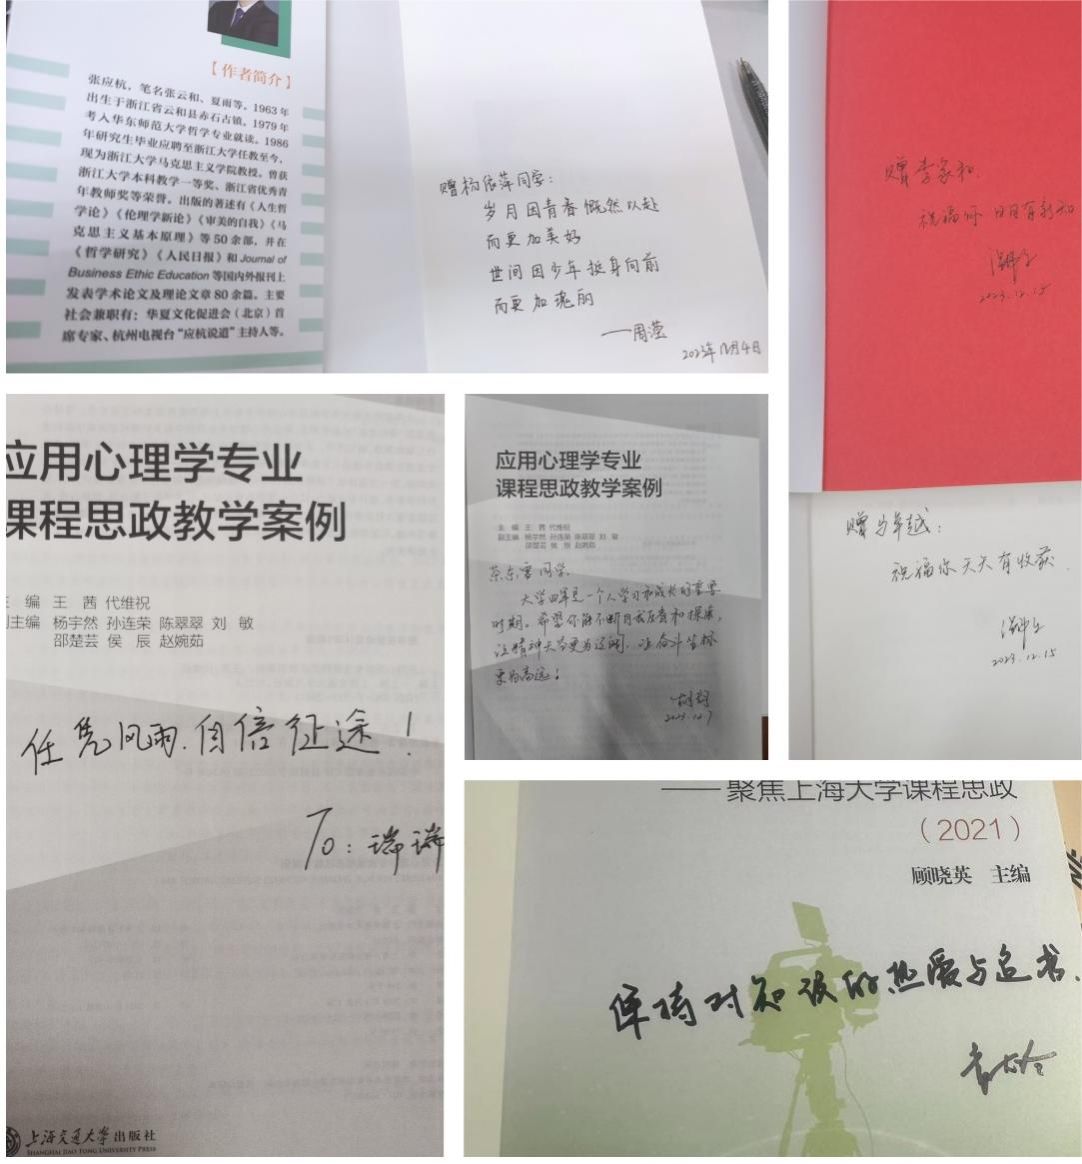 【作者简介】
张应杭，笔名张云和、夏雨等。1963年
出生于浙江省云和县赤石古镇。1979年
考入华东师范大学哲学专业就读。1986
年研究生毕业应聘至浙江大学任教至今，
现为浙江大学马克思主义学院教授。曾获
浙江大学本科教学一等奖、浙江省优秀青
年教师奖等荣誉。出版的著述有《人生哲
学论》《伦理学新论》《审美的自我》《马
克思主义基本原理》等50余部，并在
《哲学研究》《人民日报》和Journal of
Business Ethic Education等国内外报刊上
发表学术论文及理论文章80余篇。主要
社会兼职有：华夏文化促进会（北京）首
席专家、杭州电视台“应杭说道”主持人等。
赠杨依萍同学：
岁月因青春慨然以赴
而更加美好
世间因少年挺身向前
而更加瑰丽
——周滢
2023年12月4日
赠李家和.
祝福你 日日有新知
2023.12.15
应用心理学专业
课程思政教学案例
主 编 王 茜 代维祝
副主编 杨宇然 孙连荣 陈翠翠 刘 敏
邵楚芸 侯 辰 赵婉茹
任凭风雨.自信征途！
To：瑞瑞
上海交通大学出版社
SHANGHAI JIAO TONG UNIVERSITY PRESS
应用心理学专业
课程思政教学案例
主 编 王 茜 代维祝
副主编 杨宇然 孙连荣 陈翠翠 刘 敏
邵楚芸 侯 辰 赵婉茹
同学.
大学四年是一个人学习和成长的重要
时期。希望你能不断自我反省和探索，
让精神天空更为辽阔，让奋斗坐标
更为高远！
2023.12.7
祝福你天天有收获.
2023.12.15
——聚焦上海大学课程思政
（2021）
顾晓英 主编
保持对知识的热爱与追求.